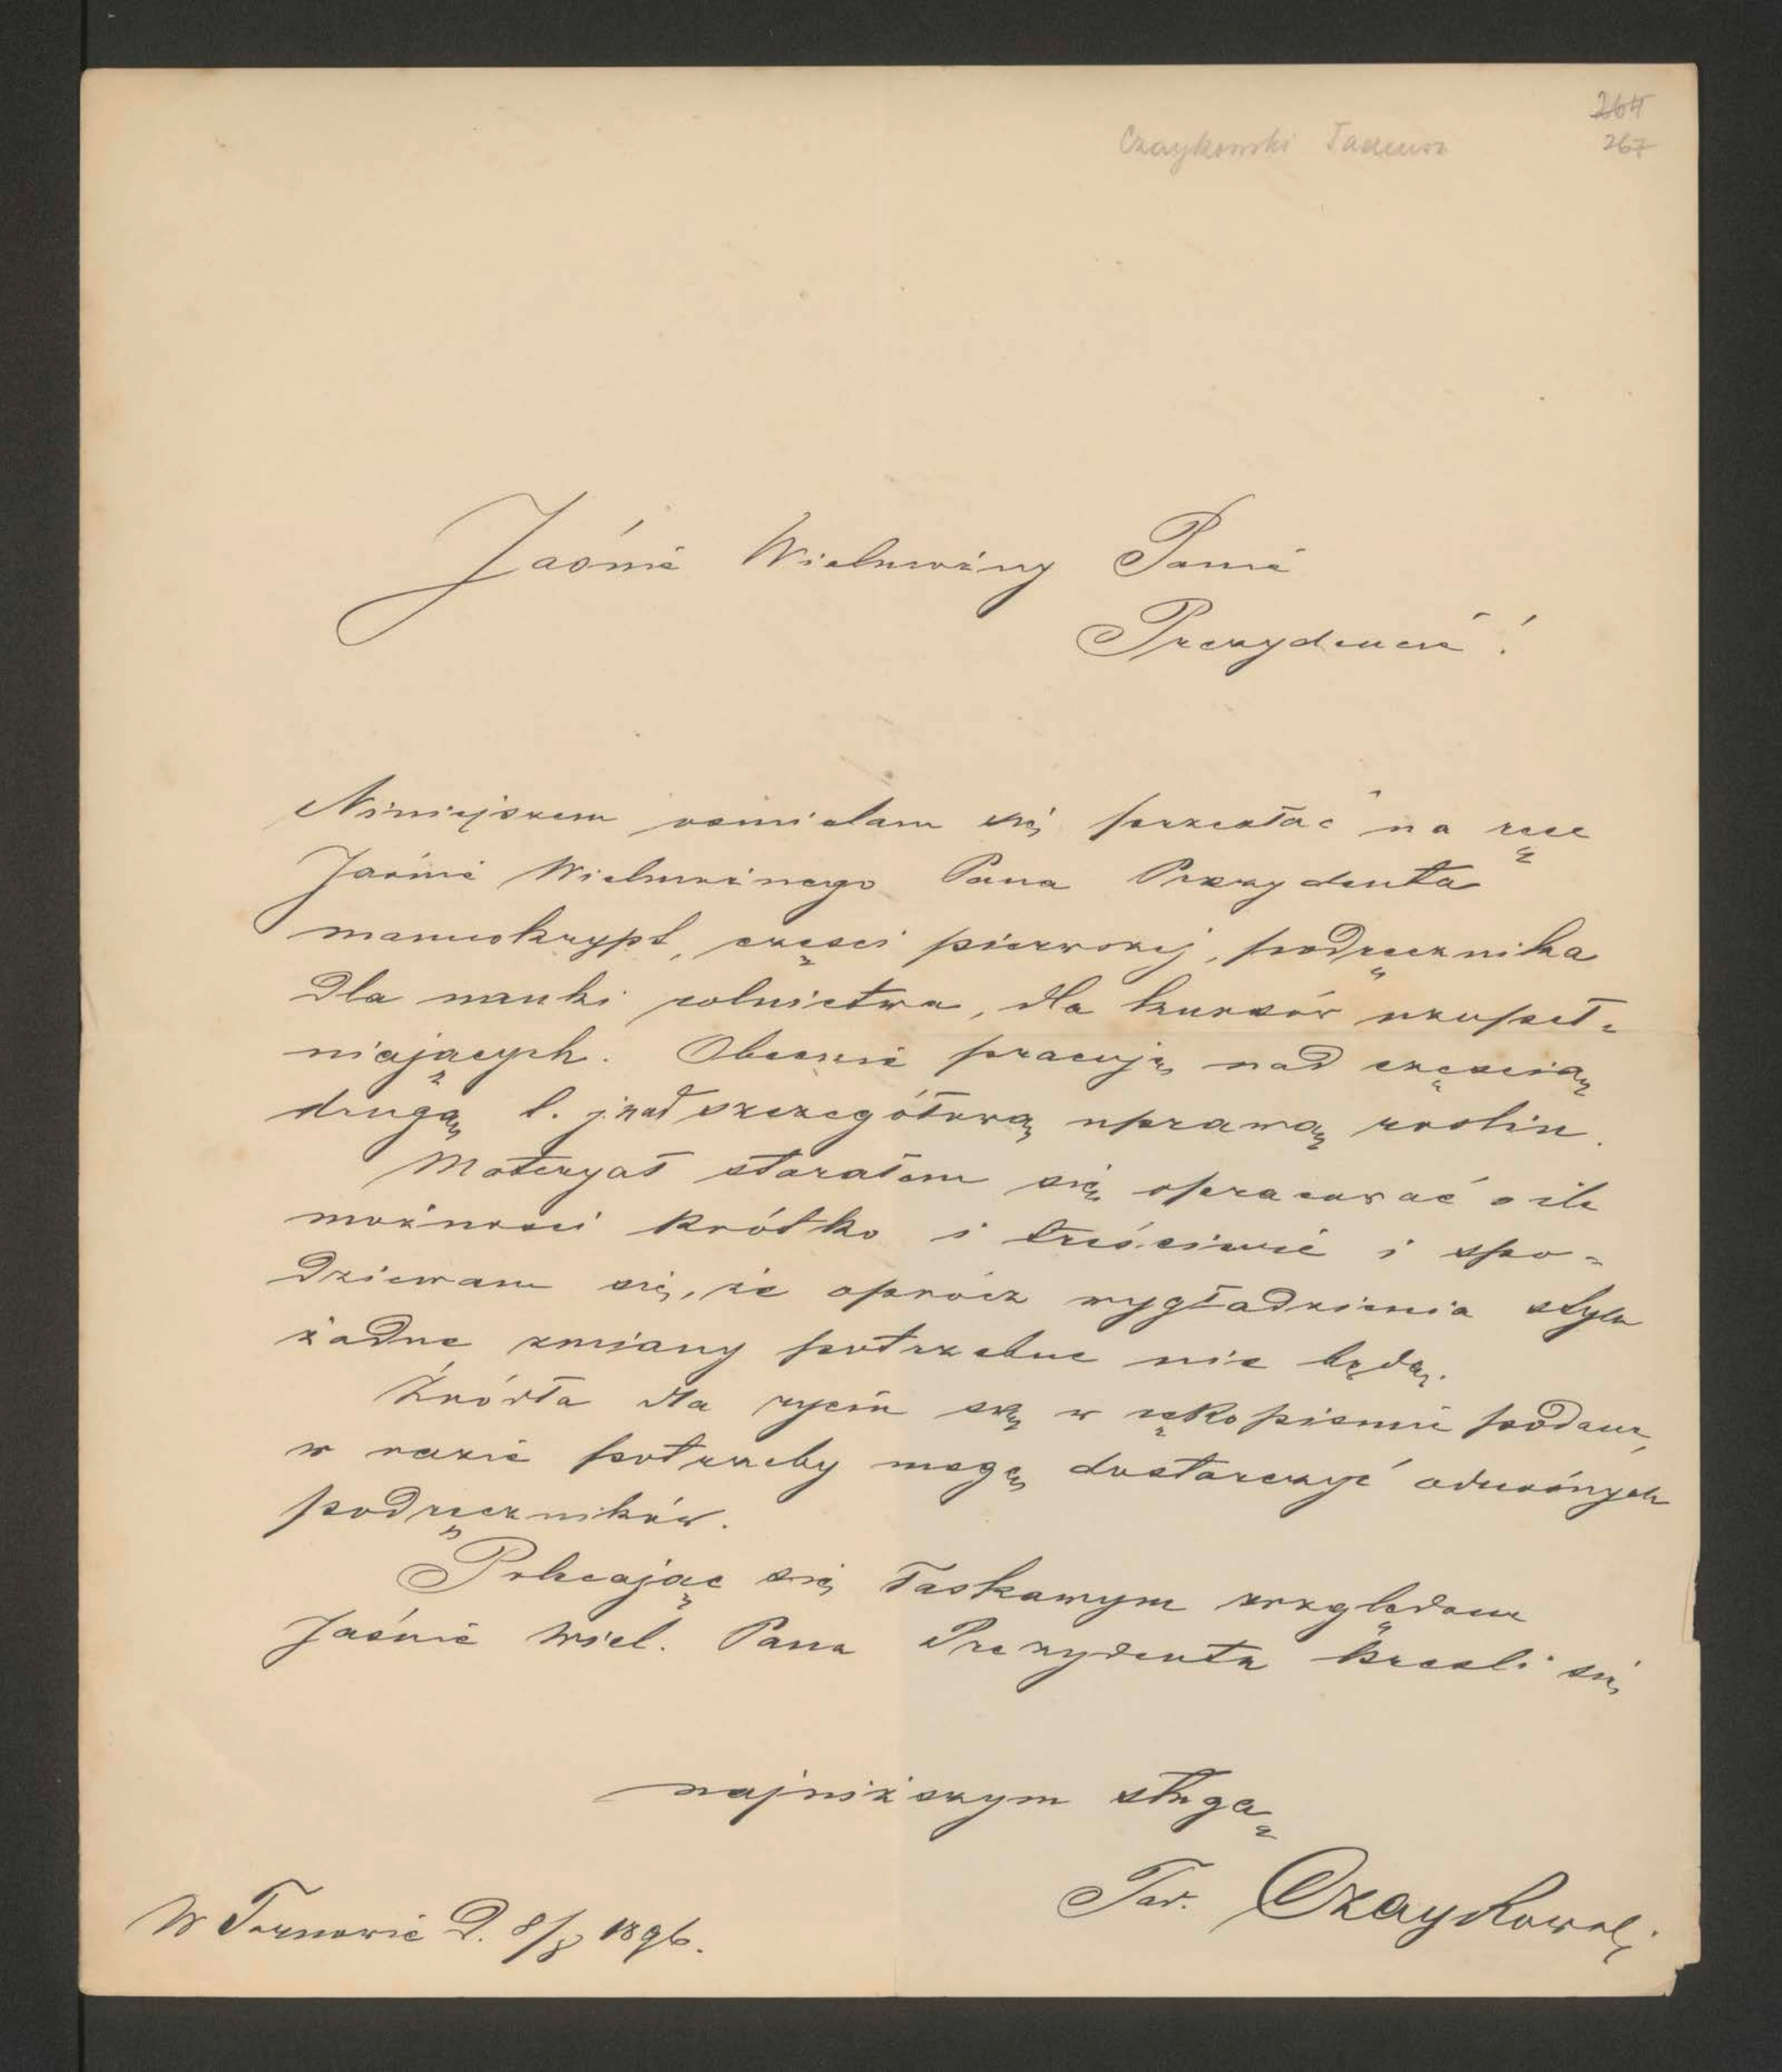 264
Czaykowski Tadeusz 267
Jaśnie Wielmożny Panie
Prezydencie!
Niniejszem ośmielam się przesłać na ręce
Jaśnie Wielmożnego Pana Prezydenta
manuskrypt, części pierwszej, podręcznika
dla nauki rolnictwa, dla kursów uzupeł-
niających. Obecnie pracuję nad częścią
drugą t. j. nad szczegółową uprawą roślin.
Materyał starałem się opracować o ile
możności krótko i treściwie i spo-
dziewam się, że oprócz wygładzienia stylu
żadne zmiany potrzebne nie będą.
Źródła dla rycin są w rękopismie podane,
w razie potrzeby mogę dostarczyć odnośnych
podręczników.
Polecając się łaskawym względom
Jaśnie Wiel. Pana Prezydenta kreśli się
najniższym sługą
Tad. Czaykowski
W Tarnowie D. 8/8 1896.